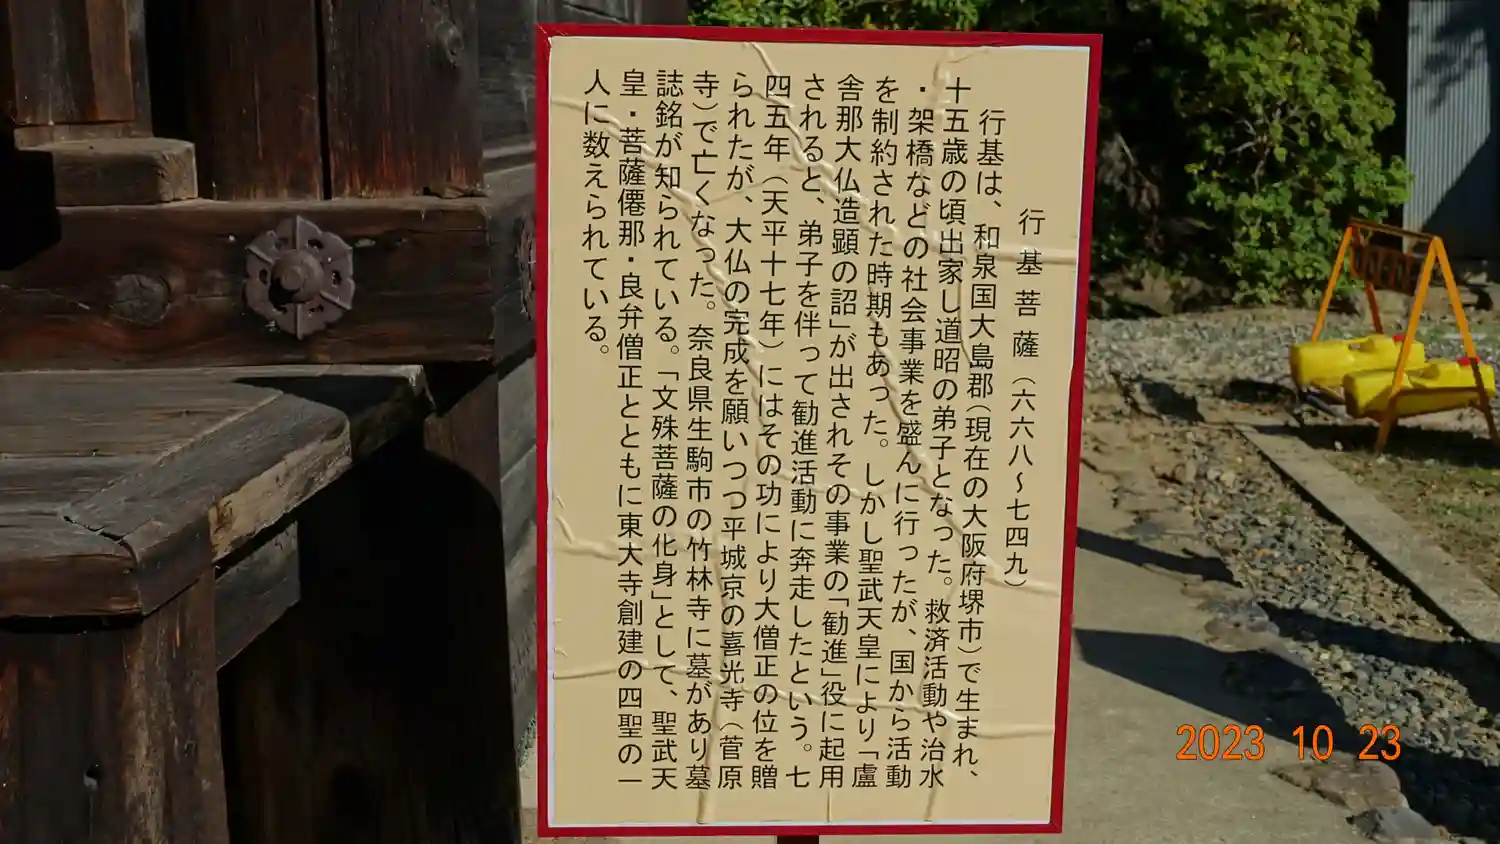 行基菩薩（六六八～七四九）
行基は、和泉国大島郡（現在の大阪府堺市）で生まれ、
十五歳の頃出家し道昭の弟子となった。救済活動や治水
・架橋などの社会事業を盛んに行ったが、国から活動
を制約された時期もあった。しかし聖武天皇により「盧
舎那大仏造顕の詔」が出されその事業の「勧進」役に起用
されると、弟子を伴って勧進活動に奔走したという。七
四五年（天平十七年）にはその功により大僧正の位を贈
られたが、大仏の完成を願いつつ平城京の喜光寺（菅原
寺）で亡くなった。奈良県生駒市の竹林寺に墓があり墓
誌銘が知られている。「文殊菩薩の化身」として、聖武天
皇・菩薩僊那・良弁僧正とともに東大寺創建の四聖の一
人に数えられている。
2023 10 23